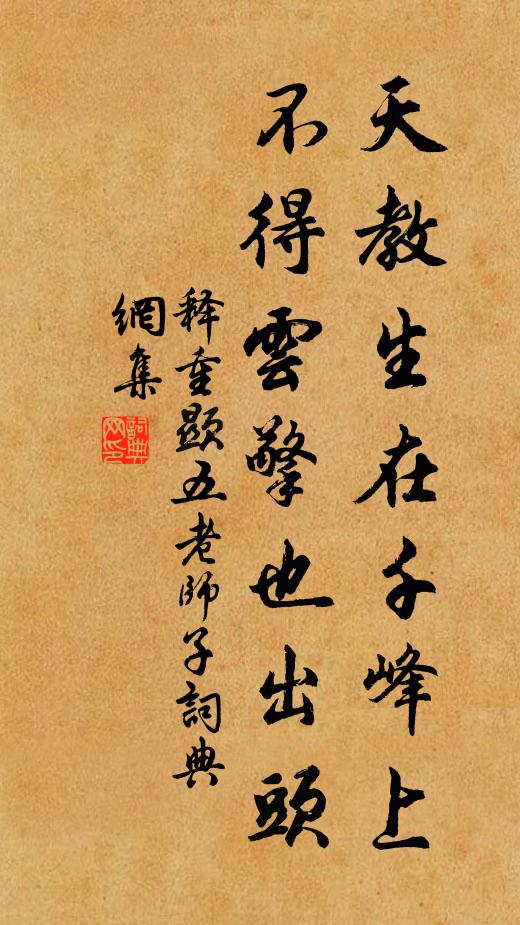 天教生在千峰上
不得雲擎也出頭
释重顯五老師子詞典
網集
詞典
网印